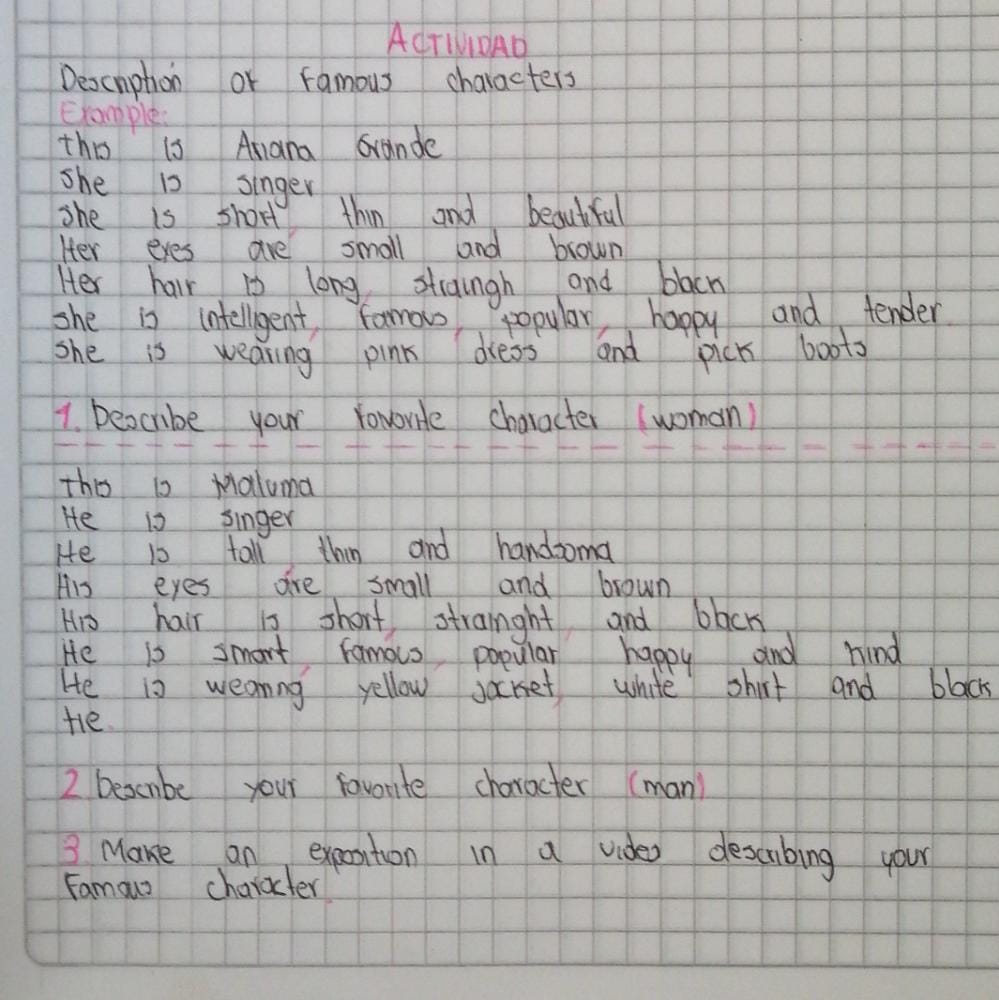 ACTIVIDAD
Description of famous characters
Example:
this is Ariana Grande
she is singer
she is short, thin and beautiful
Her eyes are small and brown
Her hair is long, straingh and black
she is intelligent, famous, popular, happy and tender.
she is wearing pink dress and pick boots
1. Describe your favorite character (woman)
this is Maluma
He is singer
He is tall thin and handsoma
His eyes are small and brown
His hair is short, strainght, and black
He is smart, famous, popular happy and kind
He is wearing yellow jacket, white shirt and black
tie.
2 Describe your favorite character (man)
3. Make an exposition in a video describing your
famous character.